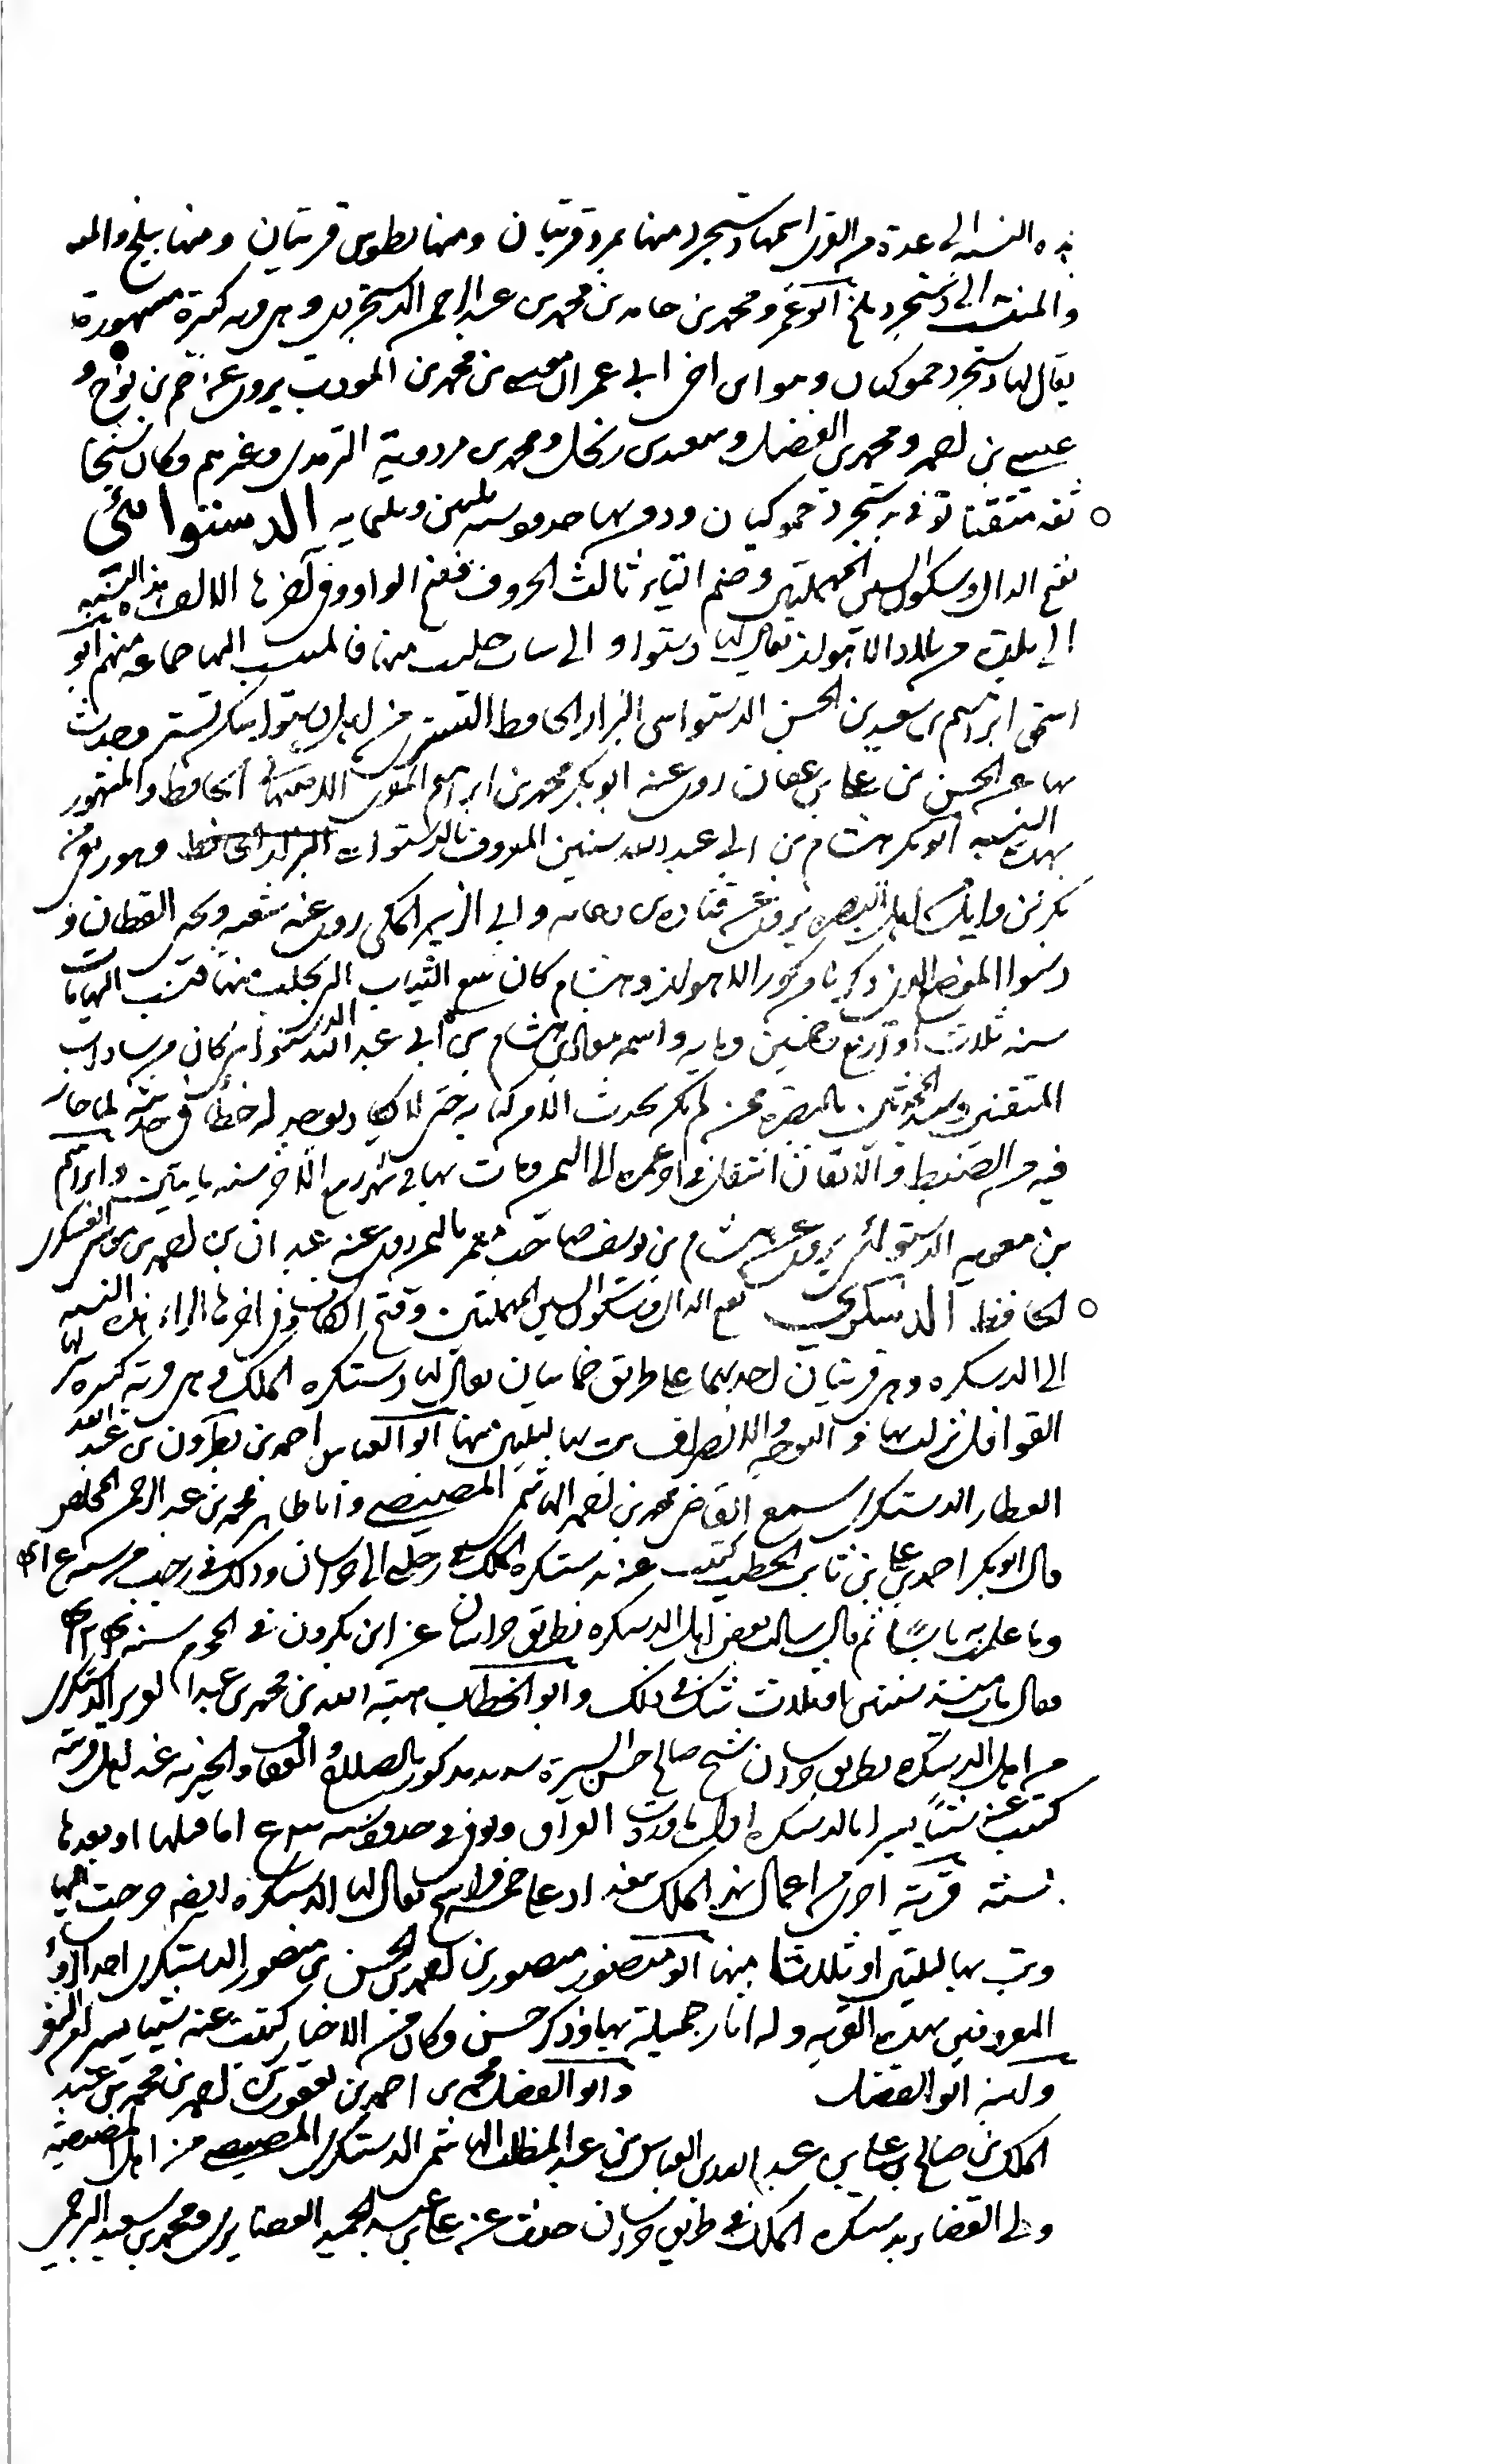 هذه النسبة الى عدة من القرى اسمها دستجرد منها بمرو قريتان ومنها بطوس قريتان ومنها ببلخ
والمنتسب الى دستجرد بلخ ابو عمرو محمد بن حامد بن محمد بن عبد الرحمن الدستجردي وهي قرية كبيرة مشهورة
يقال لها دستجرد جموكيان وهو ابن اخي ابي عمران موسى بن محمد بن المودب يروي عن بن نوح و
عيسى بن احمد ومحمد بن الفضل وسعيد بن ومحمد بن مردويه الترمذي وغيرهم وكان شيخا
ثقة متقنا توفي بدستجرد جموكيان ودوسها حدود سنة ثلثين وثلثمايه الدستوائي
بفتح الدال وسكون السين المهملتين وضم التاء ثالث الحروف وفتح الواو وفي آخرها الالف هذه النسبة
الى بلدة من بلاد الاهواز يقال لها دستوا و الى ثياب جلبت منها فالمنتسب اليها جماعة منهم ابو
اسحق ابراهيم بن سعيد بن الحسن الدستوائي البزاز الحافظ التستري من اهل دستوا سكن تستر وحدث
بها عن الحسن بن علي بن عفان روى عنه ابو بكر محمد بن ابراهيم المقري الاصبهاني الحافظ والمشهور
بهذه النسبة ابو بكر هشام بن ابي عبد الله سنبر المعروف بالدستوائي البزاز الحافظ وهو ربعي من
بكر بن وايل من اهل البصرة يروي عن قتادة بن دعامة وابي الزبير المكي روى عنه شعبة ويحيى القطان و
دستوا الموضع الذي ذكرنا من كور الاهواز وهشام كان يبيع الثياب التي تجلب منها فنسب اليها مات
سنة ثلاث او اربع وخمسين ومايه واسم معاذ بن هشام بن ابي عبد الله الدستوائي كان من سادات
المتقنين وسيد المحدثين بالبصرة ممن لم يكن يحدث الا من كتابه حتى لا يكاد يوجد له خطأ في حديثه لما حاز
فيه من الضبط والاتقان انتقل في آخر عمره الى اليمن ومات بها في شهر ربيع الآخر سنة مايتين وابراهيم
بن معوية الدستوائي يروي عن هشام بن يوسف صاحب معمر باليمن روى عنه عبدان بن احمد بن موسى العسكري
الحافظ الدسكري بفتح الدال وسكون السين المهملتين وفتح الكاف وفي آخرها الراء هذه النسبة
الى الدسكره وهي قريتان احديهما على طريق خراسان يقال لها دسكره الملك وهي قرية كبيرة
القوافل نزلت بها في التوجه والانصراف بت بها ليلتين منها ابو العباس احمد بن بكرون بن عبد الله
العطار الدسكري سمع القاضي محمد بن احمد الهاشمي المصيصي وابا طاهر محمد بن عبد الرحمن المخلص
قال ابو بكر احمد بن علي بن ثابت الخطيب كتبت عنه بدسكره الملك في رحلتي الى خراسان وذلك في رجب من سنة
وما علمت به باسا ثم قال سالت بعض اهل الدسكره بطريق خراسان عن ابن بكرون في المحرم سنة
فقال مات منذ سنتين او ثلاث شك في ذلك وابو الخطاب هبة الله بن محمد بن عبد العزيز الدسكري
من اهل الدسكره بطريق خراسان شيخ صالح حسن السيرة سديد مذكور بالصلاح والعفاف والخيرية عند اهل قريته
كتبت عنه شيئا يسيرا بالدسكره اول ما وردت العراق وتوفي في حدود سنة اما قبلها او بعدها
بسنة قرية اخرى من اعمال نهر الملك ببغداد على خمس فراسخ يقال لها الدسكره ايضا خرجت اليها
وبت بها ليلتين او ثلاثا منها ابو منصور منصور بن احمد بن الحسن بن منصور الدسكري احد الرؤسا
المعروفين بهذه القرية وله اثار جميلة بها وذكر حسن وكان من الاخيار كتبت عنه شيئا يسيرا
وابنه ابو الفضل وابو الفضل محمد بن احمد بن يعقوب بن احمد بن محمد بن عبد
الملك بن صالح بن علي بن عبد الله بن العباس بن عبد المطلب الهاشمي الدسكري المصيصي من اهل المصيصة
ولي القضاء بدسكره الملك في طريق خراسان حدث عن علي بن عبد الحميد الغضايري ومحمد بن سعيد الترخمي